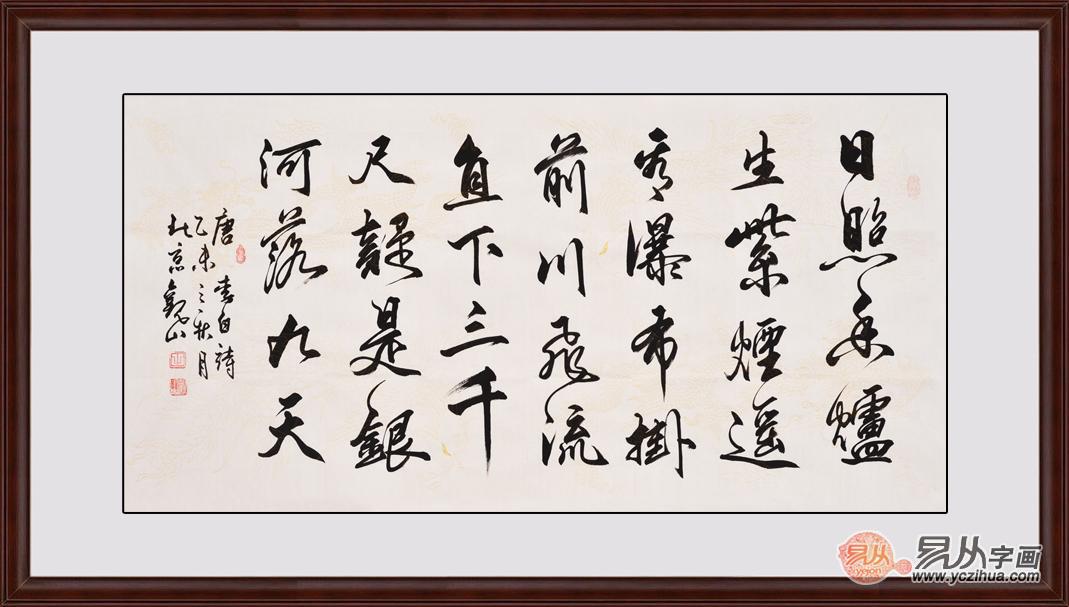 日照香爐
生紫煙遥
看瀑布掛
前川飛流
直下三千
尺疑是銀
河落九天
唐 李白詩
乙未之秋月
北京
易从
易从字画
www.yczihua.com